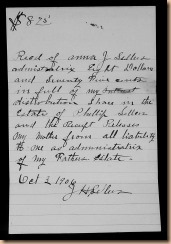 $8.75
Recd of Anna J. Sellers
administratrix Eight Dollars
and Seventy Five cents
in full of my
distribution Share in the
Estate of Phillip Sellers
and the Receipt Releases
My Mother from all liability
to me as administratrix
of my Fathers Estate.
Oct 2 1906
J H Sellers